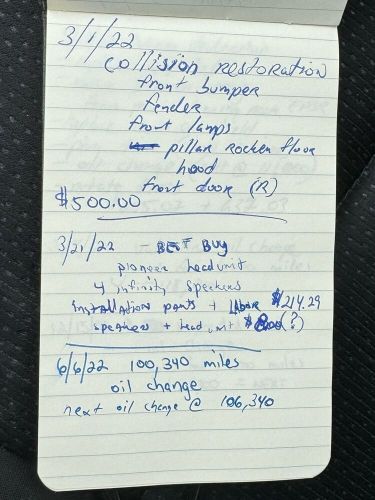 3/1/22
Collision Restoration
front bumper
fender
front lamps
pillar rocker floor
hood
front door (R)
$500.00
3/21/22 - BEST BUY
pioneer head unit
4 infinity speakers
installation parts + labor $214.29
speakers + head unit $800(?)
6/6/22 100,340 miles
oil change
next oil change @ 106,340